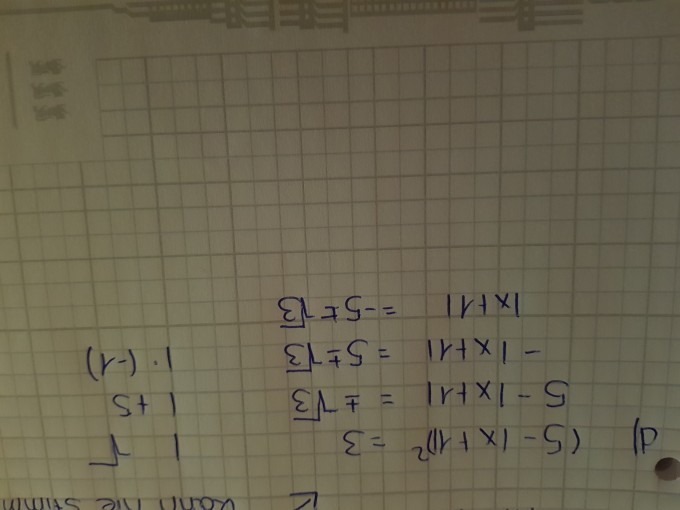 Kann nie stimm
d) (5 - |x + 1|)² = 3 | √
5 - |x+1| = ± √3 | +5
- |x+1| = 5 ± √3 | · (-1)
|x+1| = -5 ± √3